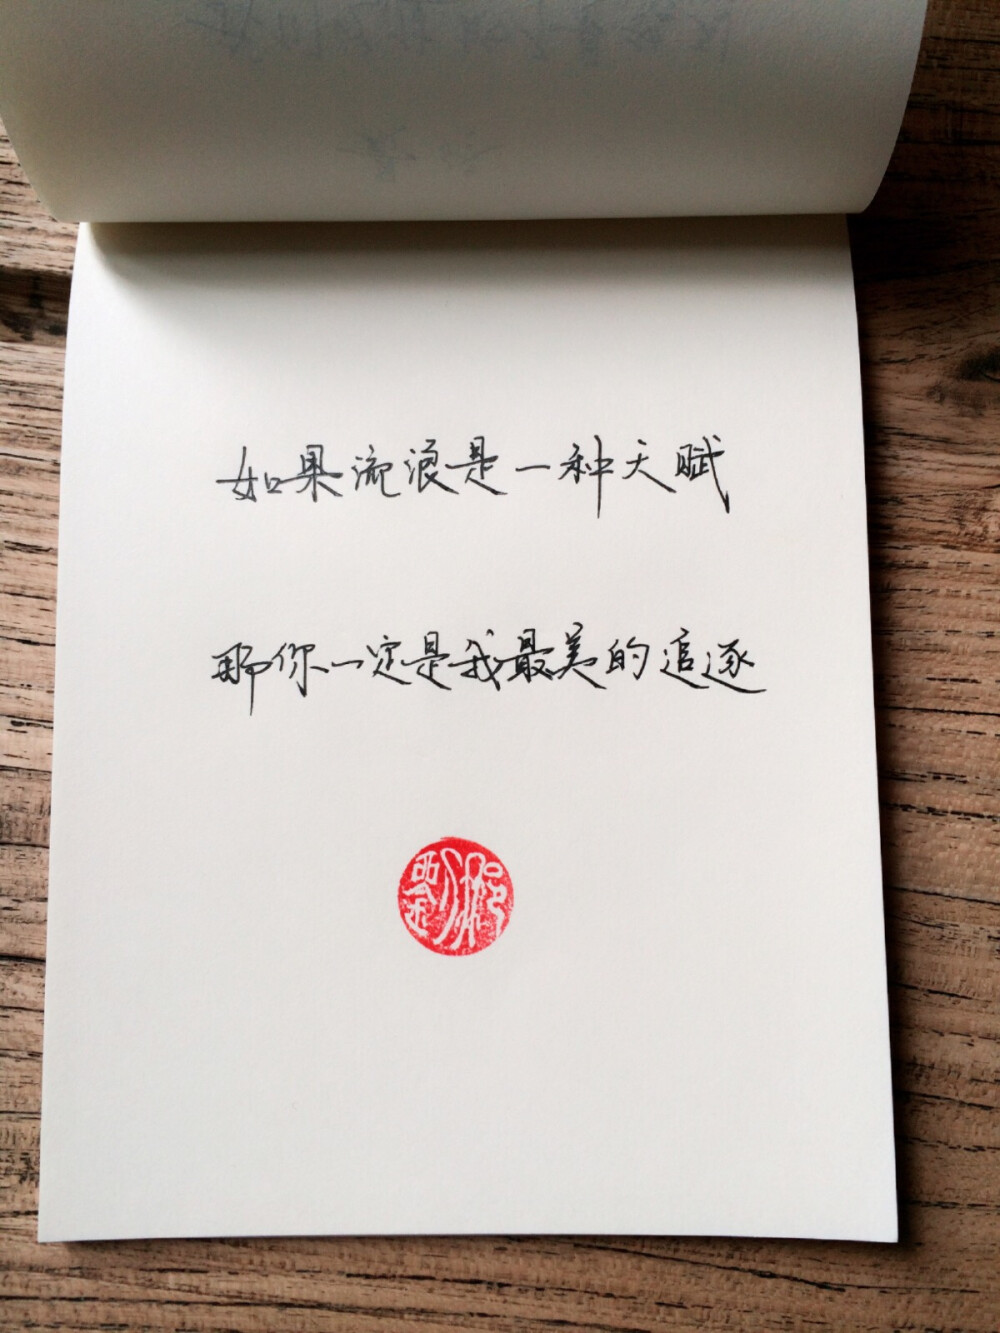 如果流浪是一种天赋
那你一定是我最美的追逐